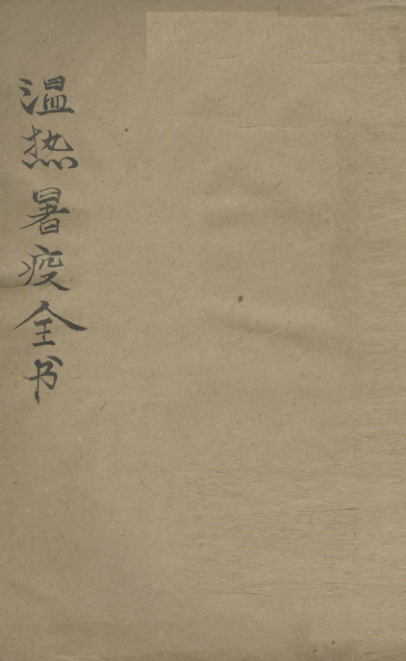 温热暑疫全书